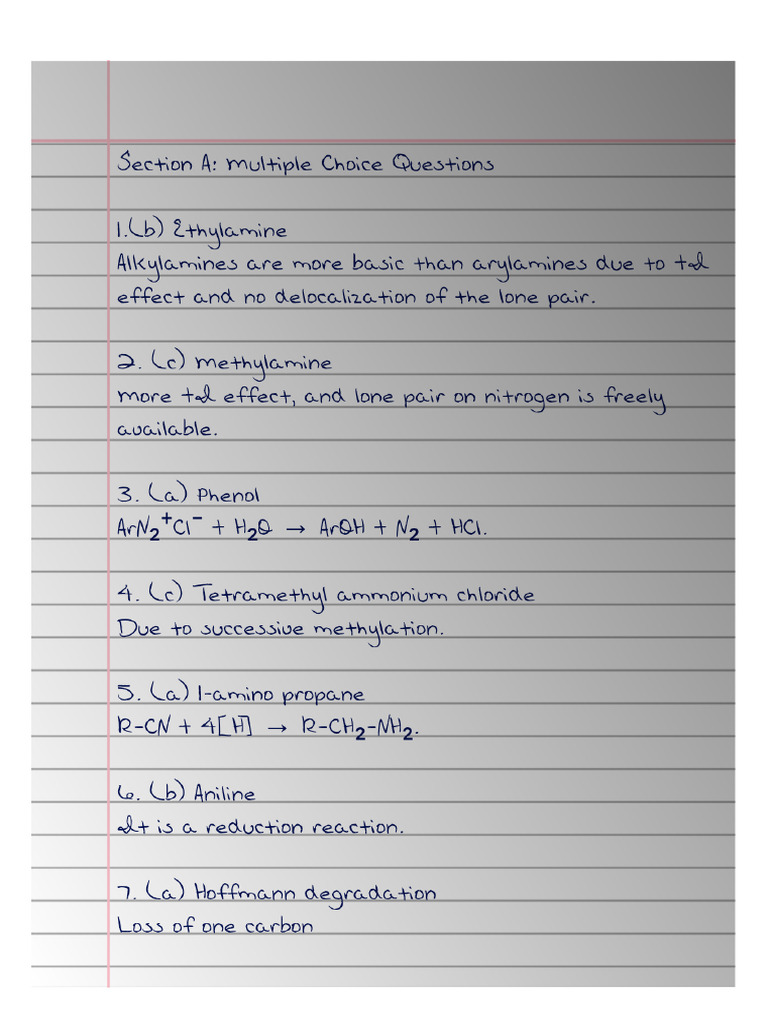 Section A: Multiple Choice Questions
1.(b) Ethylamine
Alkylamines are more basic than arylamines due to +I
effect and no delocalization of the lone pair.
2. (c) methylamine
more +I effect, and lone pair on nitrogen is freely
available.
3. (a) Phenol
ArN₂⁺Cl⁻ + H₂O → ArOH + N₂ + HCl.
4. (c) Tetramethyl ammonium chloride
Due to successive methylation.
5. (a) 1-amino propane
R-CN + 4[H] → R-CH₂-NH₂.
6. (b) Aniline
It is a reduction reaction.
7. (a) Hoffmann degradation
Loss of one carbon